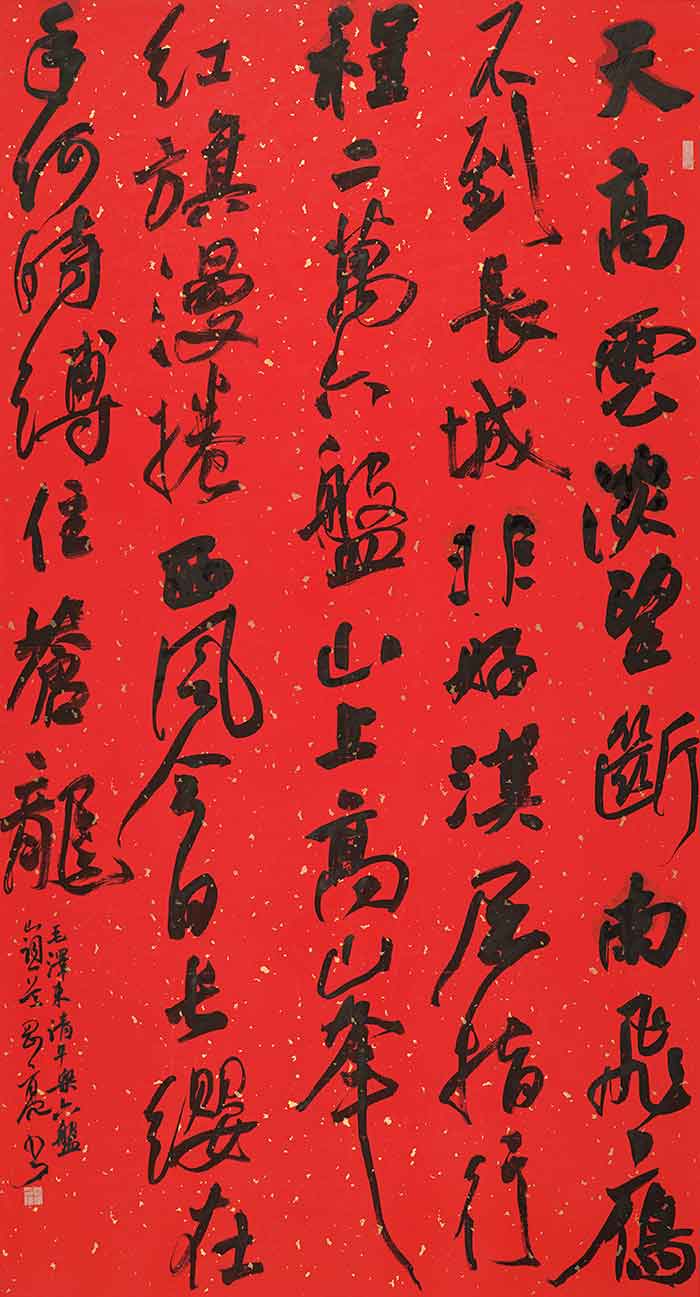 天高雲淡望斷南飛鴈
不到長城非好漢屈指行
程二萬六盤山上高峯
红旗漫捲西風今日长纓在
手何時縛住蒼龍
毛澤東清平樂六盤
山詞